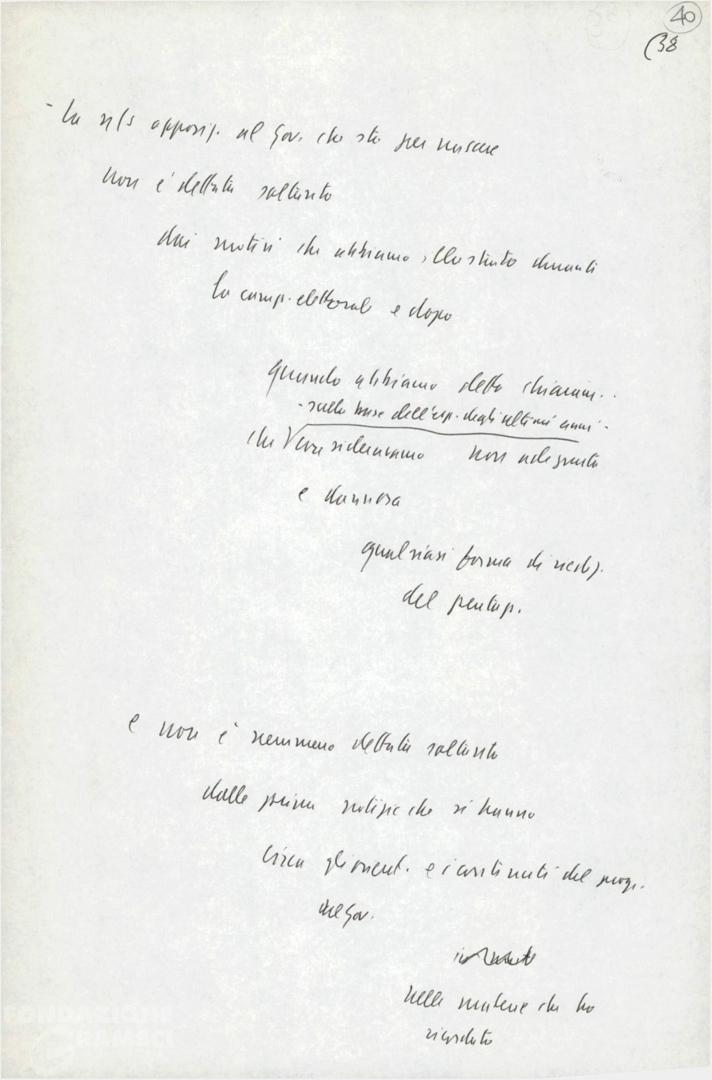 40
(38
- La ns/s opposiz. al Gov. che sta per nascere
non è dettata soltanto
dai motivi che abbiamo illustrato durante
la camp. elettorale e dopo
quando abbiamo detto chiaram..
- sulla base dell'esp. degli ultimi anni -
che consideravamo non adeguata
e dannosa
qualsiasi forma di
del pentap.
e non è nemmeno dettata soltanto
dalle prime notizie che si hanno
circa gli orient. e i contenuti del progr.
del Gov.
nelle materie che ho
ricordato
FONDAZIONE
GRAMSCI